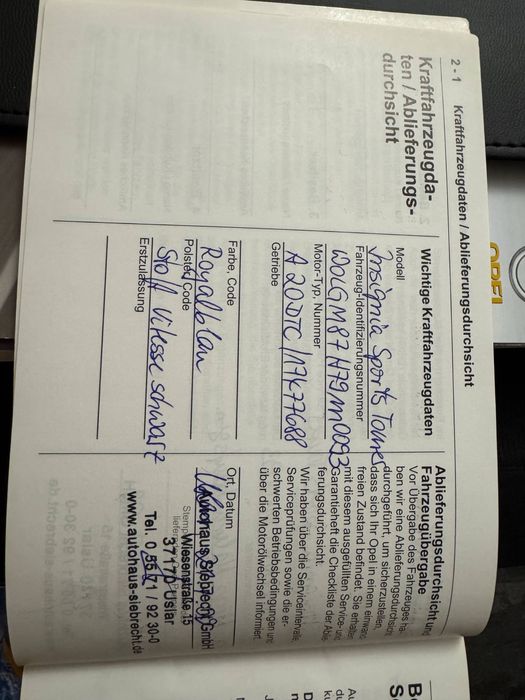 2 - 1 Kraftfahrzeugdaten / Ablieferungsdurchsicht
Kraftfahrzeugda-
ten / Ablieferungs-
durchsicht
Wichtige Kraftfahrzeugdaten
Modell
Insignia Sports Tourer
Fahrzeug-Identifizierungsnummer
Motor-Typ, Nummer
A20DTC / 17K77688
Getriebe
Farbe, Code
Royalblau
Polster, Code
Stoff Vitesse schwarz
Erstzulassung
Ablieferungsdurchsicht und
Fahrzeugübergabe
Vor Übergabe des Fahrzeuges ha-
ben wir eine Ablieferungsdurchsicht
durchgeführt, um sicherzustellen,
dass sich Ihr Opel in einem einwand-
freien Zustand befindet. Sie erhalten
mit diesem ausgefüllten Service- und
Garantieheft die Checkliste der Ablie-
ferungsdurchsicht.
Wir haben über die Serviceintervalle,
Serviceprüfungen sowie die er-
schwerten Betriebsbedingungen und
über die Motorölwechsel informiert.
Ort, Datum
Autohaus Siebrecht GmbH
Wiesenstraße 15
37170 Uslar
Tel. 0 55 71 / 92 30-0
www.autohaus-siebrecht.de
OPEL